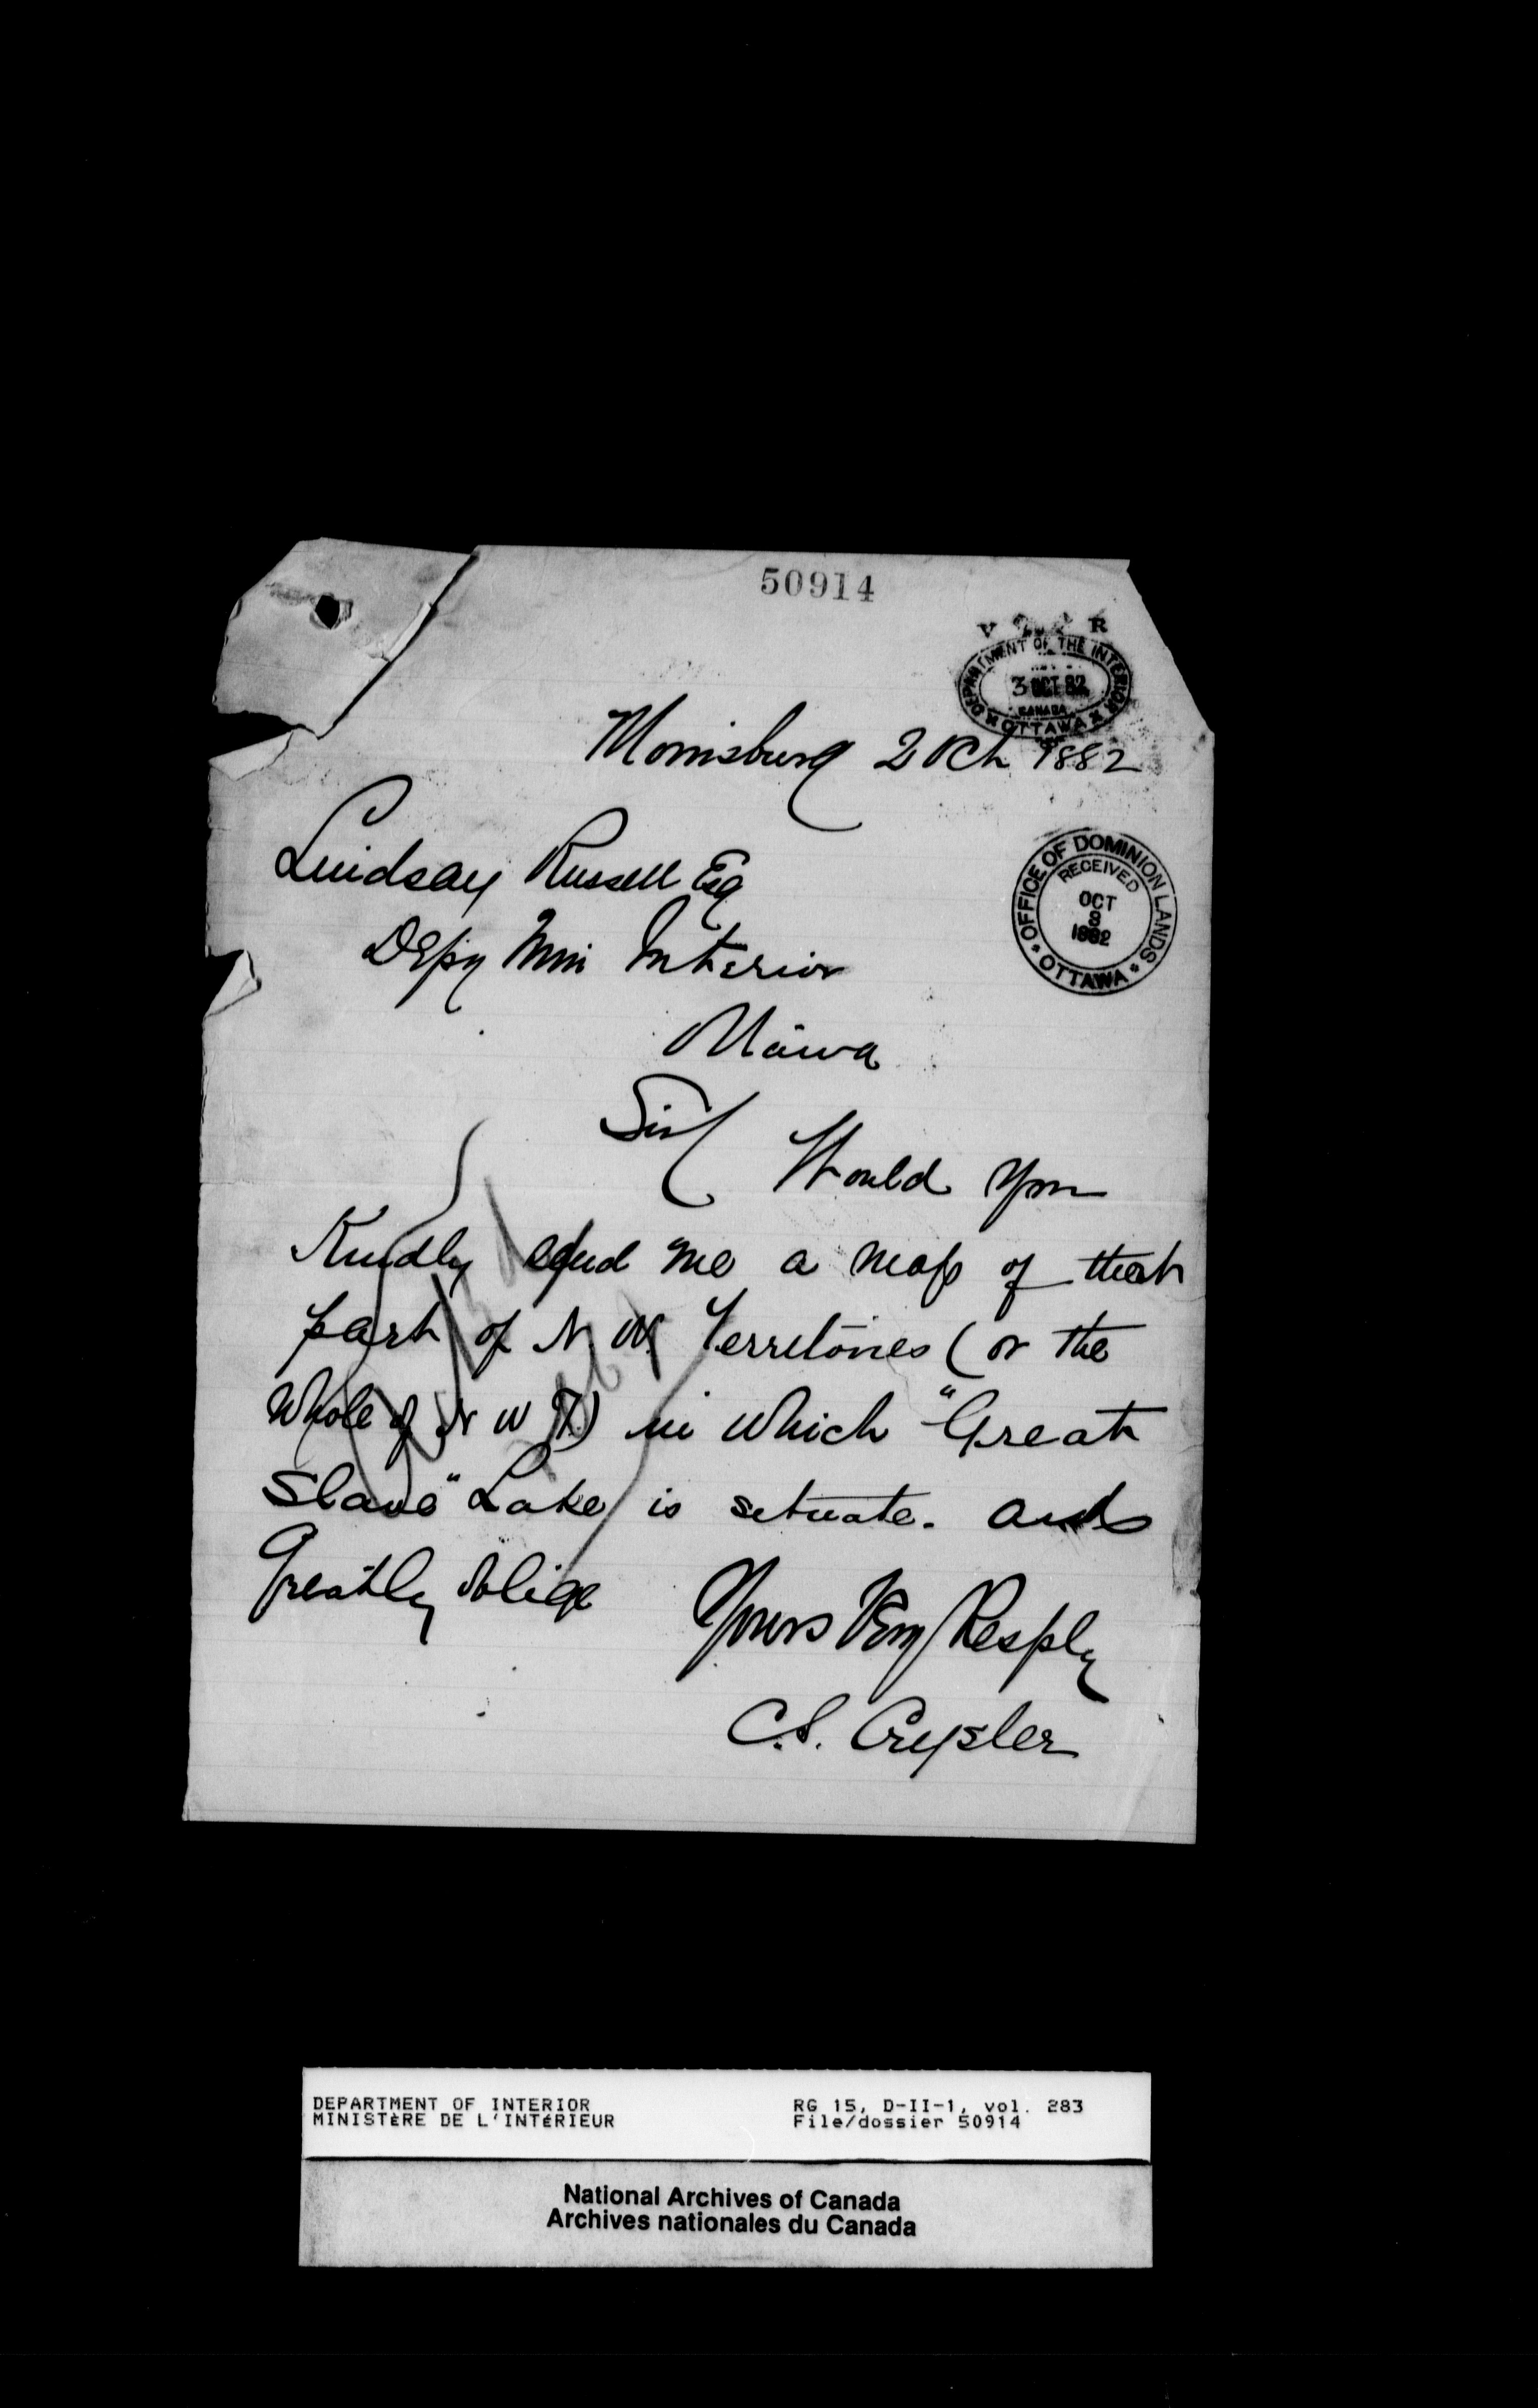 50914
V R
DEPARTMENT OF THE INTERIOR
3 OCT 82
CANADA
OTTAWA
Morrisburg 2 Oct 1882
OFFICE OF DOMINION LANDS
RECEIVED
OCT
3
1882
OTTAWA
Lindsay Russell Esq
Depy Min Interior
Ottawa
Sir/ Would you
Kindly send me a map of that
part of N. W. Territories (or the
Whole of N W T.) in which "Great
Slave" Lake is situate. and
Greatly oblige
Yours Very Resply
C.S. Crysler
DEPARTMENT OF INTERIOR RG 15, D-II-1, vol. 283
MINISTÈRE DE L'INTÉRIEUR File/dossier 50914
National Archives of Canada
Archives nationales du Canada